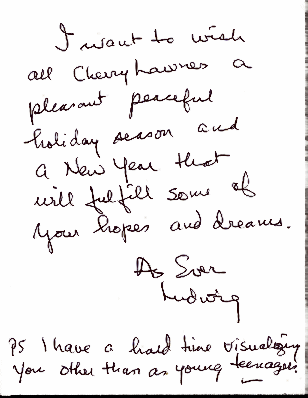 I want to wish
all Cherry Lawners a
pleasant peaceful
holiday season and
a New Year that
will fulfill some of
your hopes and dreams.
As Ever
Ludwig
PS I have a hard time visualizing
you other than as young teenagers.